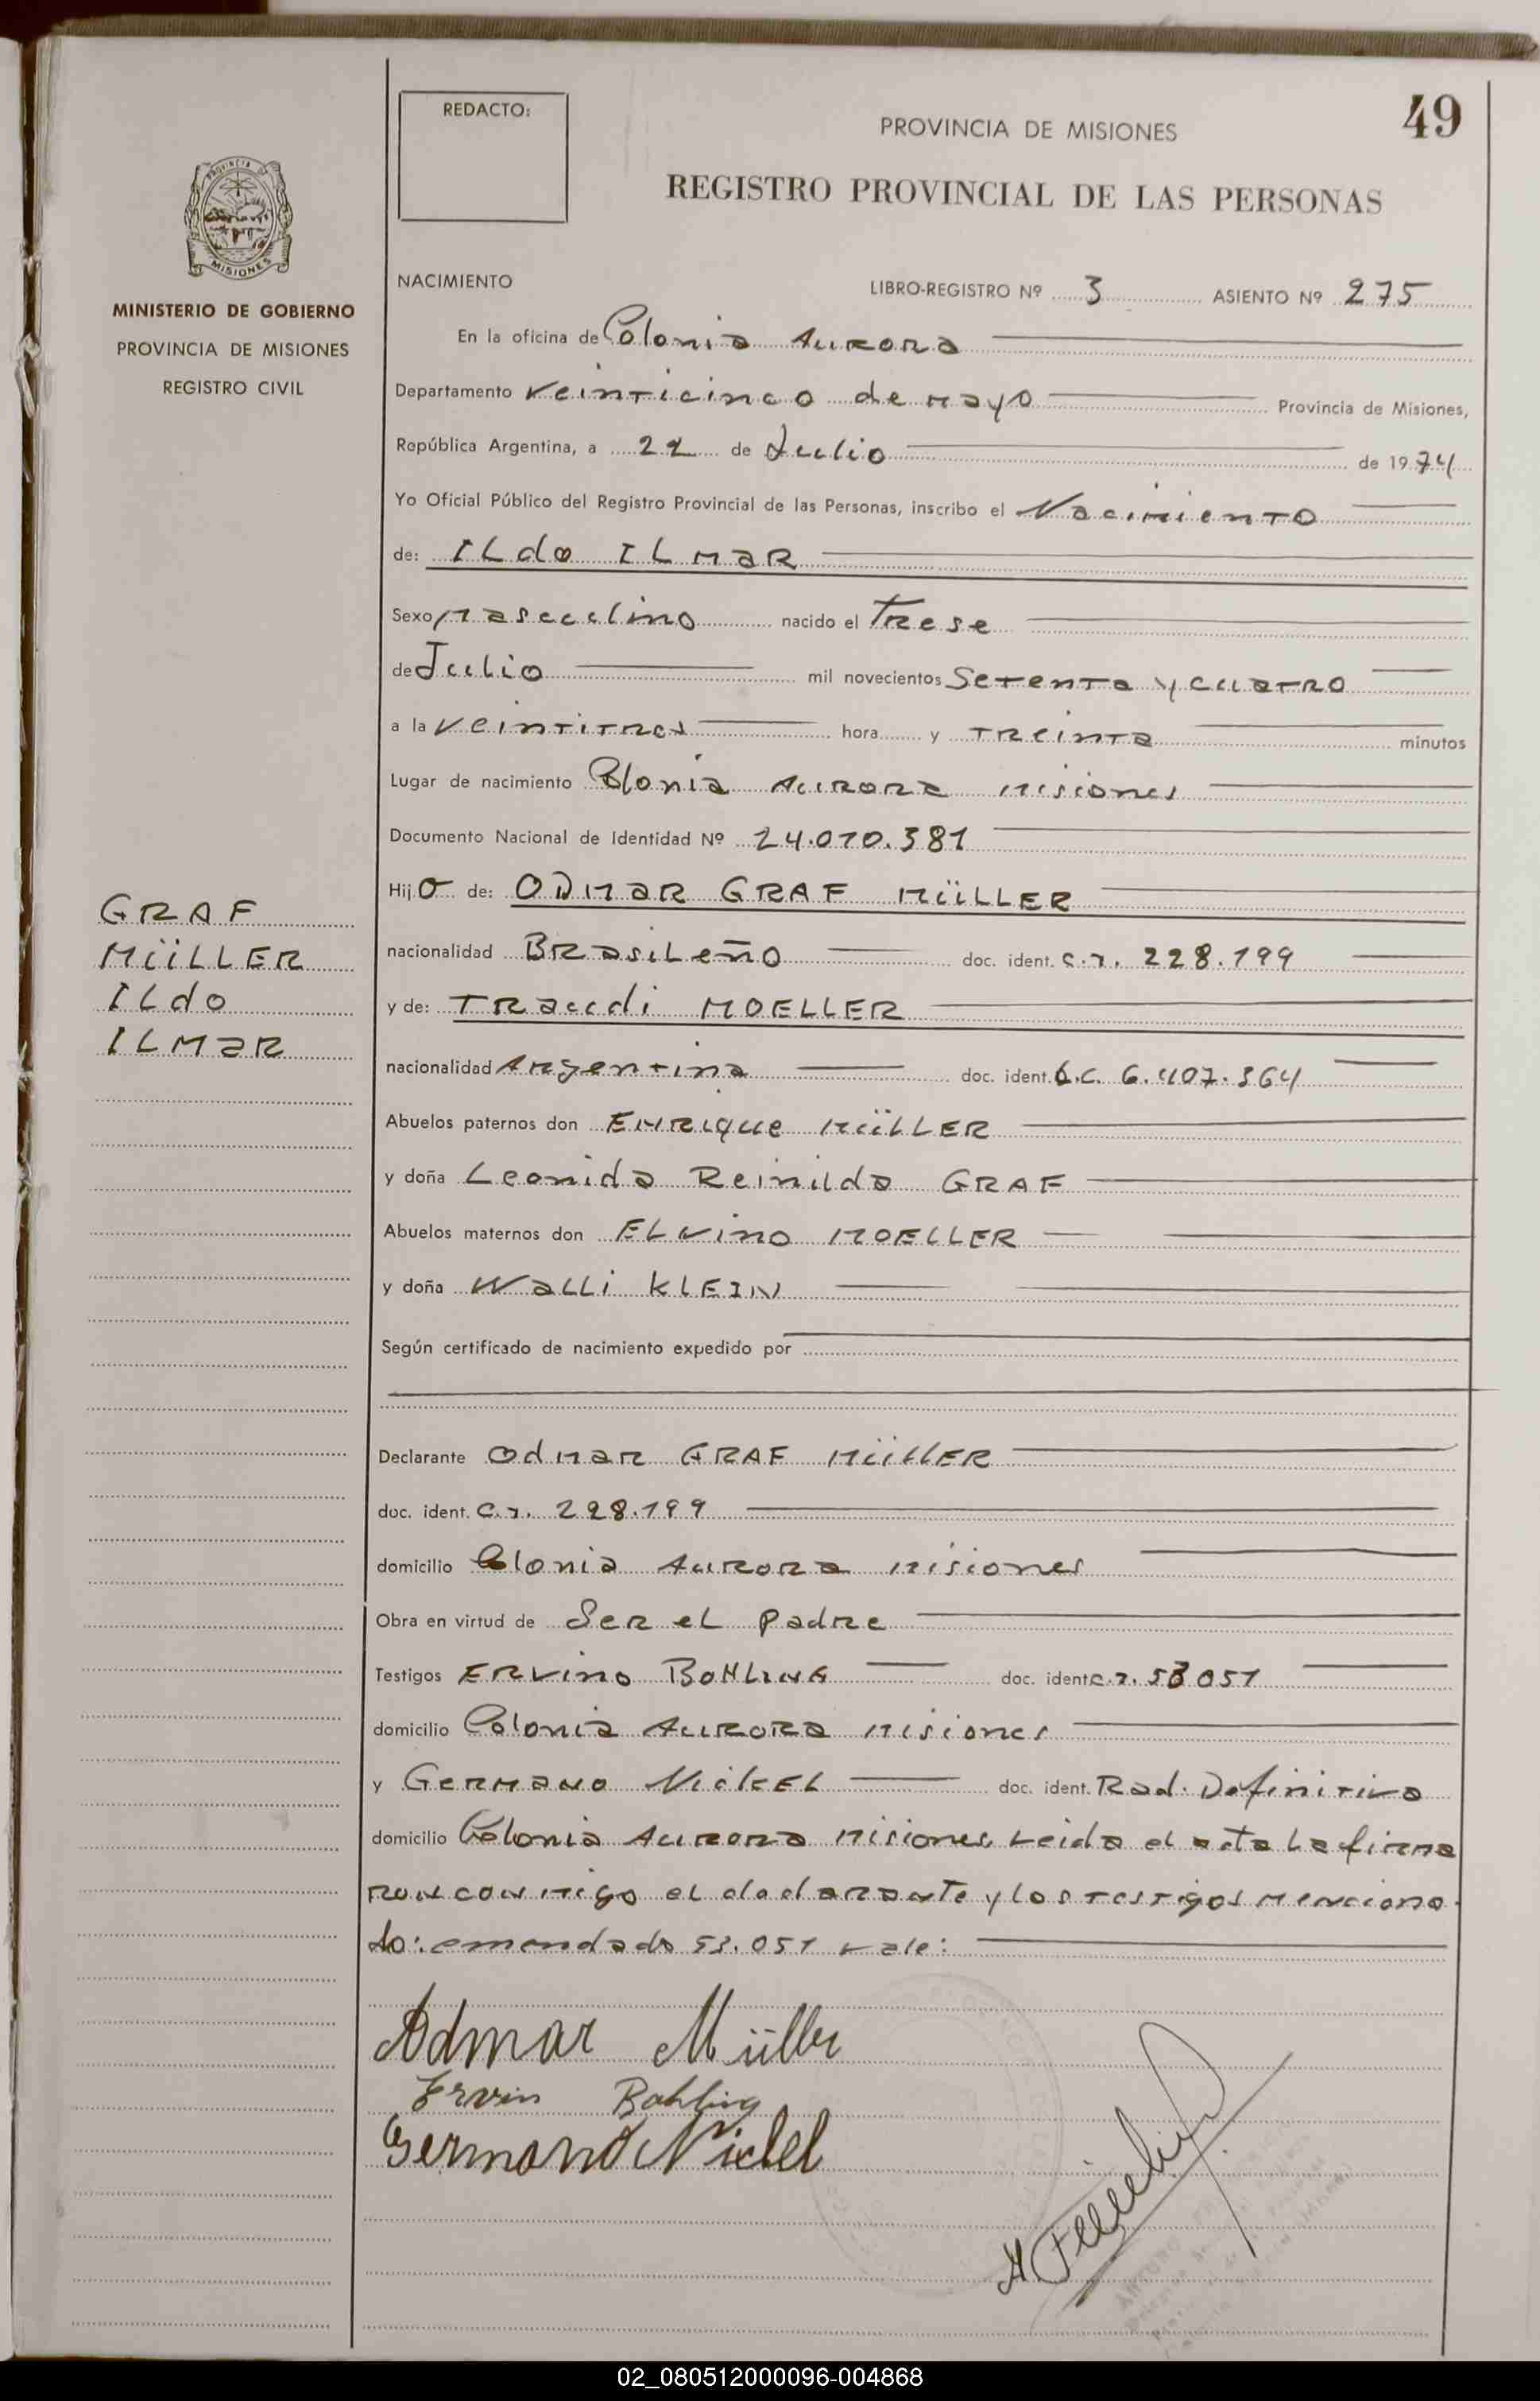 REDACTO:
PROVINCIA DE MISIONES
49
REGISTRO PROVINCIAL DE LAS PERSONAS
PROVINCIA DE
MISIONES
MINISTERIO DE GOBIERNO
PROVINCIA DE MISIONES
REGISTRO CIVIL
NACIMIENTO LIBRO-REGISTRO Nº 3 ASIENTO Nº 275
En la oficina de Colonia Aurora
Departamento Veinticinco de mayo Provincia de Misiones,
República Argentina, a 22 de Julio de 1974
Yo Oficial Público del Registro Provincial de las Personas, inscribo el Nacimiento
de: ILdo ILMAR
Sexo masculino nacido el Trese
de Julio mil novecientos Setenta y cuatro
a la veintitres hora y treinta minutos
Lugar de nacimiento Colonia Aurora Misiones
Documento Nacional de Identidad Nº 24.010.381
Hijo de: ODMAR GRAF MÜLLER
nacionalidad BRasiLeño doc. ident. C.I. 228.199
y de: TRaudi MOELLER
nacionalidad Argentina doc. ident. L.C. 6.407.364
Abuelos paternos don ENRique MÜLLER
y doña Leonida Reinilda GRAF
Abuelos maternos don ELvino MOELLER
y doña WaLLi KLEIN
Según certificado de nacimiento expedido por
Declarante Odmar GRAF MÜLLER
doc. ident. C.I. 228.199
domicilio Colonia Aurora Misiones
Obra en virtud de Ser el padre
Testigos ERvino BOHLING doc. ident C.I. 53051
domicilio Colonia Aurora Misiones
y Germano NickEL doc. ident. Rad. Definitiva
domicilio Colonia Aurora Misiones Leida el acta La firma
ron conmigo el declarante y los testigos menciona
do: emendado 53.051 vale:
GRAF
MÜLLER
ILdo
ILMAR
Admar Müller
Ervin Bohling
Germano Nickel
02_080512000096-004868